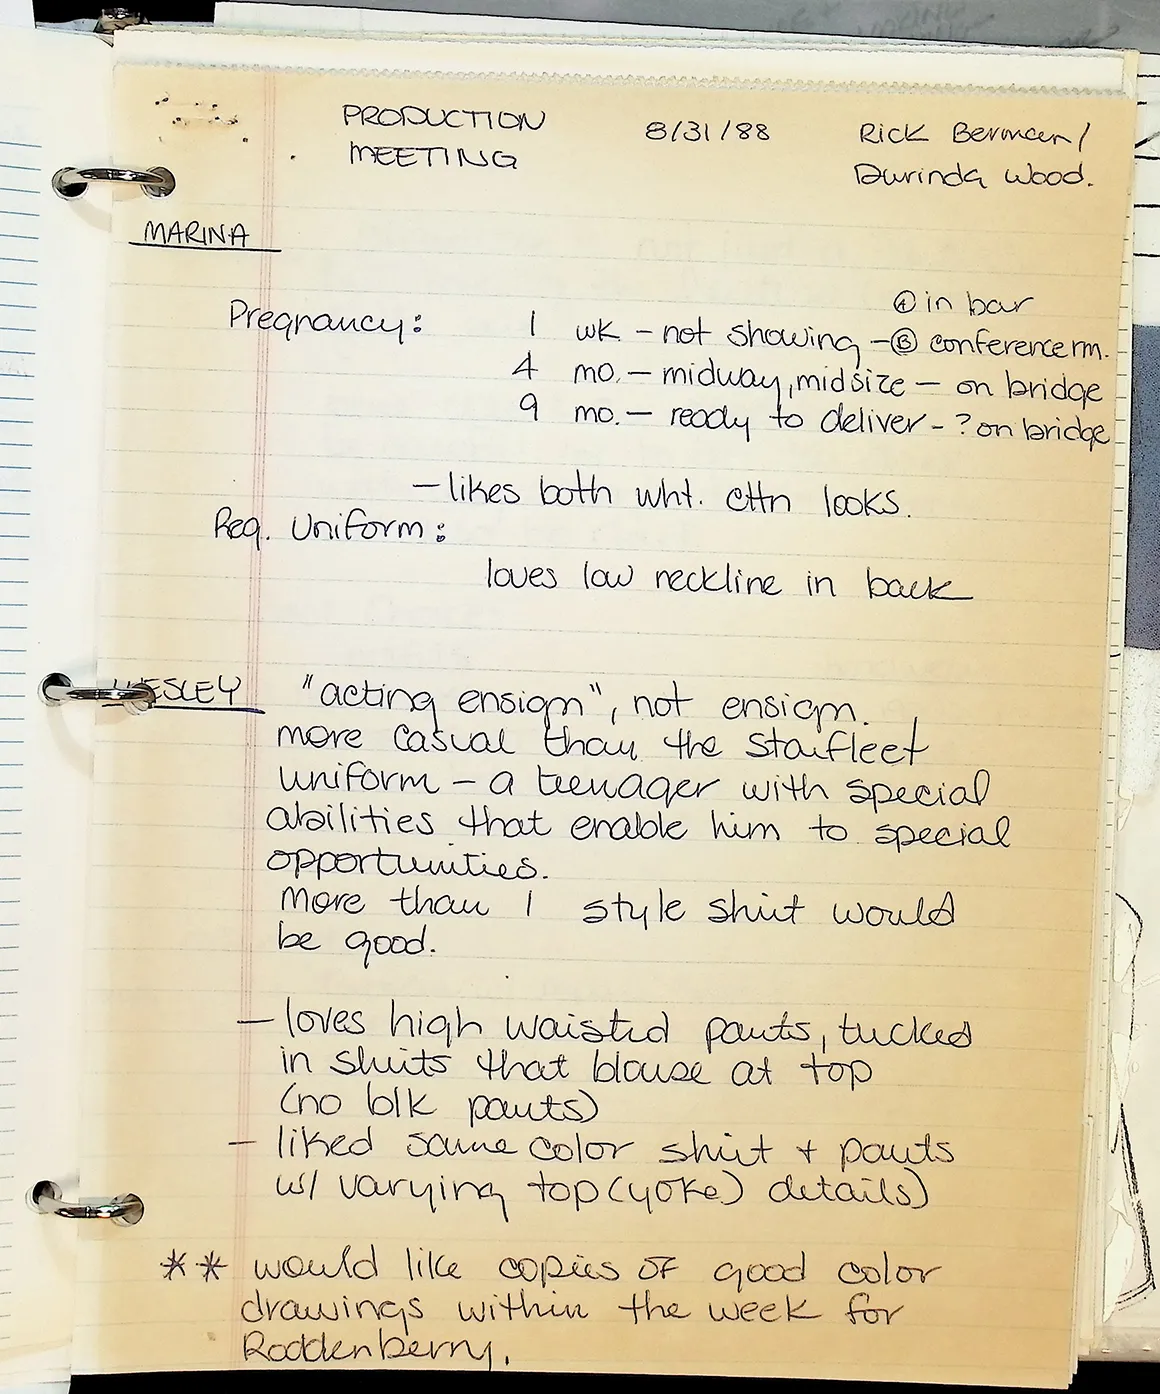 PRODUCTION MEETING 8/31/88 Rick Berman/ Durinda Wood.
MARINA
Ⓐ in bar
Pregnancy: 1 wk - not showing - Ⓑ conference rm.
4 mo. - midway, midsize - on bridge
9 mo. - ready to deliver - ? on bridge
- likes both wht. cttn looks.
Reg. Uniform:
loves low neckline in back
WESLEY "acting ensign", not ensign.
more casual than the Starfleet
uniform - a teenager with special
abilities that enable him to special
opportunities.
More than 1 style shirt would
be good.
- loves high waisted pants, tucked
in shirts that blouse at top
(no blk pants)
- liked same color shirt + pants
w/ varying top (yoke) details)
** would like copies of good color
drawings within the week for
Roddenberry.